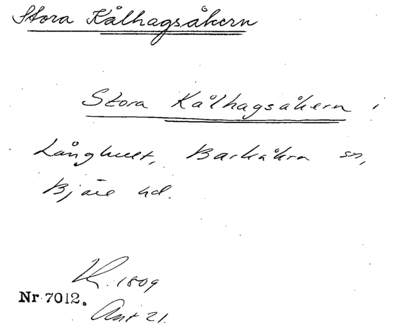 Stora Kålhagsåkern
Stora Kålhagsåkern i
Långhult, Barkåkra sn,
Bjäre hd.
LK. 1809
Nr 7012. Akt 21.